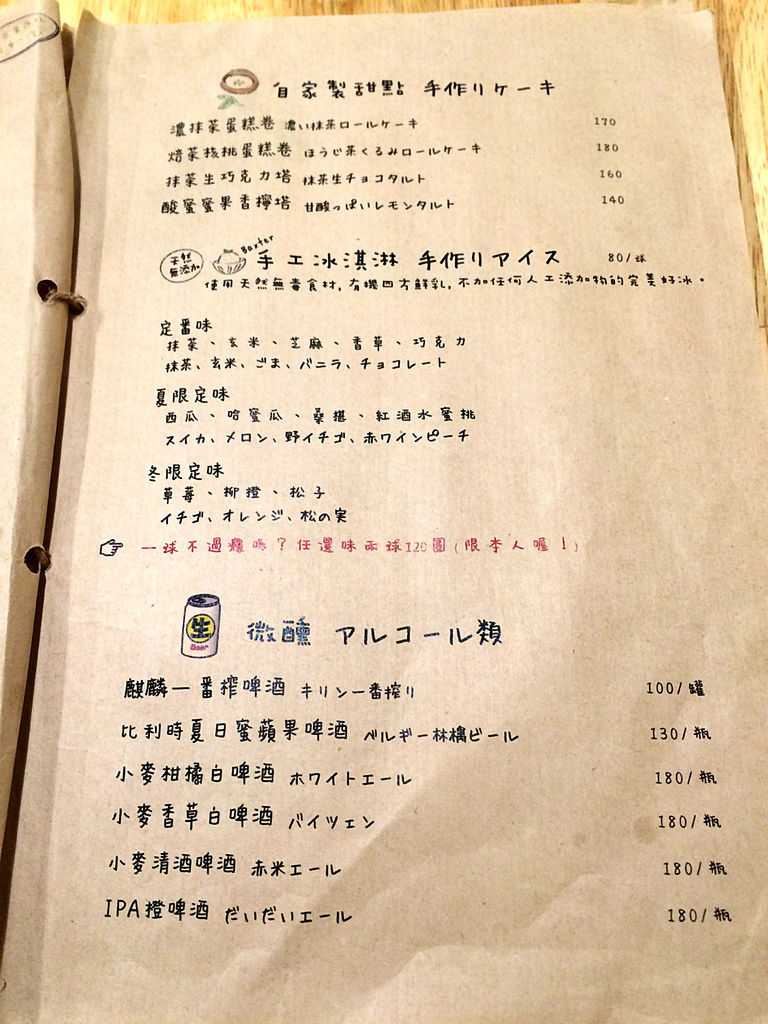 自家製甜點 手作りケーキ
濃抹茶蛋糕卷 濃い抹茶ロールケーキ 170
焙茶核桃蛋糕卷 ほうじ茶くるみロールケーキ 180
抹茶生巧克力塔 抹茶生チョコタルト 160
酸蜜蜜果香檸塔 甘酸っぱいレモンタルト 140
天然無添加 Baxter 手工冰淇淋 手作りアイス 80/球
使用天然無毒食材,有機四方鮮乳,不加任何人工添加物的完美好冰。
定番味
抹茶、玄米、芝麻、香草、巧克力
抹茶、玄米、ごま、バニラ、チョコレート
夏限定味
西瓜、哈蜜瓜、桑椹、紅酒水蜜桃
スイカ、メロン、野イチゴ、赤ワインピーチ
冬限定味
草莓、柳橙、松子
イチゴ、オレンジ、松の実
一球不過癮嗎?任選味兩球120圓(限本人喔!)
生 Beer 微醺 アルコール類
麒麟一番榨啤酒 キリン一番搾り 100/罐
比利時夏日蜜蘋果啤酒 ベルギー林檎ビール 130/瓶
小麥柑橘白啤酒 ホワイトエール 180/瓶
小麥香草白啤酒 バイツェン 180/瓶
小麥清酒啤酒 赤米エール 180/瓶
IPA橙啤酒 だいだいエール 180/瓶